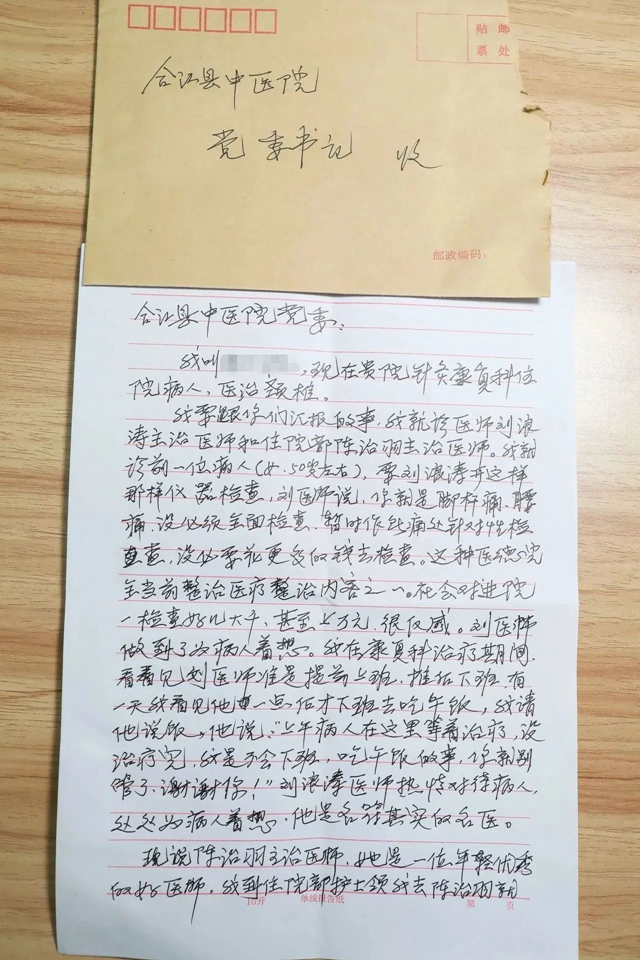 贴 邮
票 处
合江县中医院
党委书记 收
邮政编码:
合江县中医院党委:
我叫 ,现在贵院针灸康复科住
院病人,医治颈椎。
我要跟你们汇报的事,我就诊医师刘浪
涛主治医师和住院部陈治羽主治医师。我就
诊前一位病人(女.50岁左右),要刘浪涛开这样
那样仪器检查,刘医师说,你就是脚杆痛、腰
痛,没必须全面检查,暂时作些痛处针对性检
查,没必要花更多的钱去检查。这种医德完
全当前整治医疗整治内容之一。在今日进院
一检查好几大千,甚至上万元,很反感。刘医师
做到了为病人着想。我在康复科治疗期间,
看看见刘医师准是提前上班,推后下班,有
一天我看见他 一点后才下班去吃午饭,我请
他说饭,他说:“上午病人在这里等着治疗,没
治疗完,我是不会下班,吃午饭的事,你就别
管了,谢谢你!”刘浪涛医师热情对待病人,
处处为病人着想,他是名符其实的名医。
现说陈治羽主治医师,她是一位年轻优秀
的好医师,我到住院部护士领我去陈治羽就
16开 单线报告纸 第 页